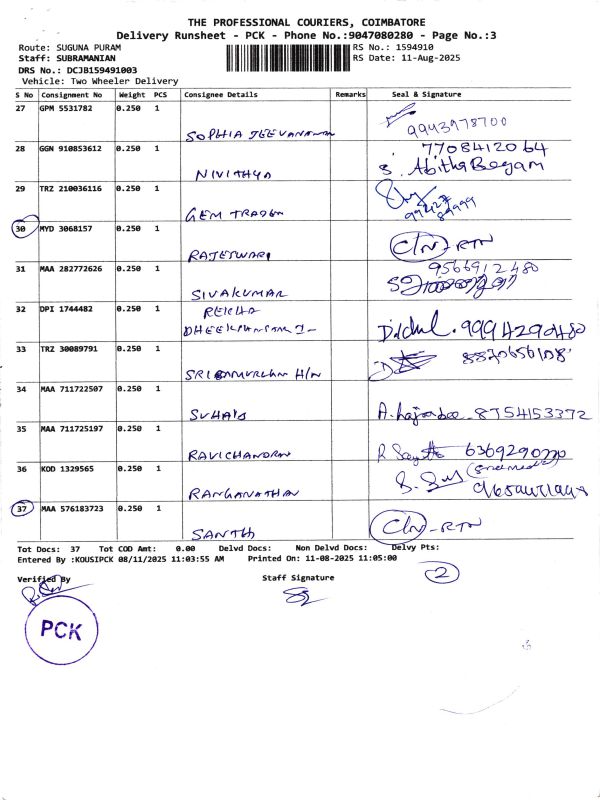 THE PROFESSIONAL COURIERS, COIMBATORE
Delivery Runsheet - PCK - Phone No.:9047080280 - Page No.:3
Route: SUGUNA PURAM RS No.: 1594910
Staff: SUBRAMANIAN RS Date: 11-Aug-2025
DRS No.: DCJB159491003
Vehicle: Two Wheeler Delivery
S No Consignment No Weight PCS Consignee Details Remarks Seal & Signature
27 GPM 5531782 0.250 1
SOPHIA JEEVANANDAM 9943978700
28 GGN 910853612 0.250 1 7708412064
NIVITHYA S. Abitha Begam
29 TRZ 210036116 0.250 1
GEM TRADER
30 MYD 3068157 0.250 1
RAJESWARI C/N - RTN
31 MAA 282772626 0.250 1 9566912480
SIVAKUMAR
32 DPI 1744482 0.250 1 REKHA
9994290480
33 TRZ 30089791 0.250 1
SRI BALAMURUGAN H/W
34 MAA 711722507 0.250 1
SUHAIS 8754153372
35 MAA 711725197 0.250 1
RAVICHANDRAN 6369290770
36 KOD 1329565 0.250 1
RANGANATHAN
37 MAA 576183723 0.250 1
SANTH C/N - RTN
Tot Docs: 37 Tot COD Amt: 0.00 Delvd Docs: Non Delvd Docs: Delvy Pts:
Entered By :KOUSIPCK 08/11/2025 11:03:55 AM Printed On: 11-08-2025 11:05:00
2
Verified By Staff Signature
PCK